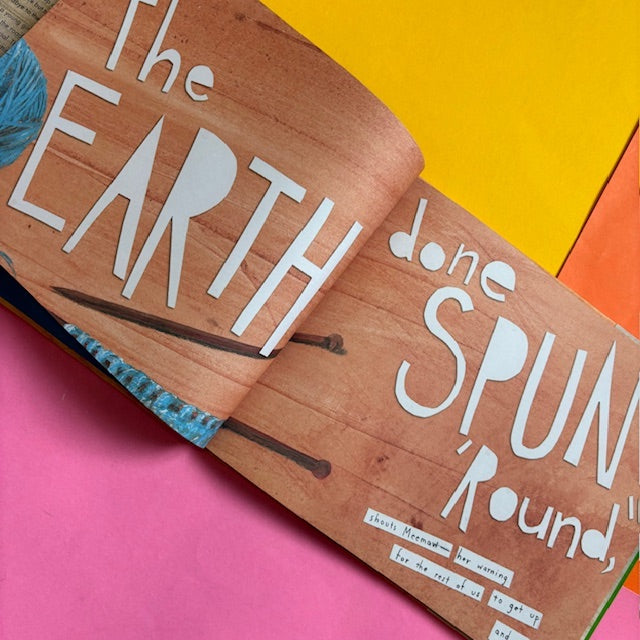 The
EARTH
done
SPUN
'Round,"
shouts Meemaw— her warning
for the rest of us to get up
and